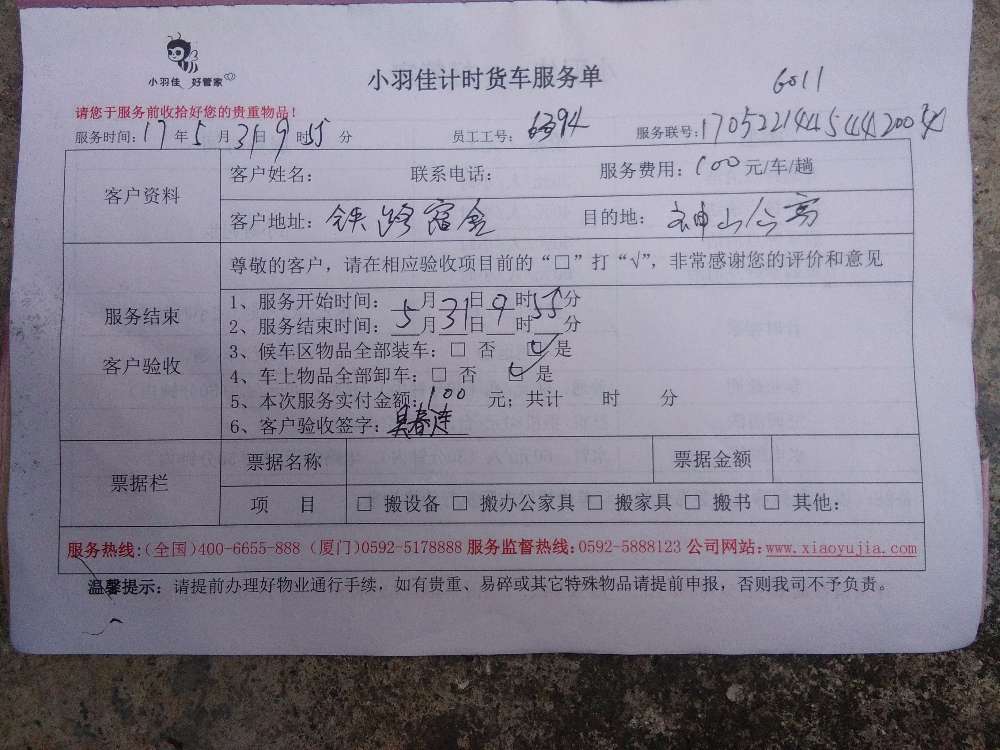 小羽佳 好管家
小羽佳计时货车服务单
6011
请您于服务前收拾好您的贵重物品！
服务时间：17年5月31日9时55分 员工工号： 服务联号：
客户资料
客户姓名： 联系电话： 服务费用：100元/车/趟
客户地址：铁路宿舍 目的地：
尊敬的客户，请在相应验收项目前的“□”打“√”，非常感谢您的评价和意见
服务结束
客户验收
1、服务开始时间： 月 日 时55分
2、服务结束时间：5月31日9时 分
3、候车区物品全部装车：□ 否 ☑ 是
4、车上物品全部卸车：□ 否 ☑ 是
5、本次服务实付金额：100 元；共计 时 分
6、客户验收签字：吴春连
票据栏
票据名称 票据金额
项 目 □ 搬设备 □ 搬办公家具 □ 搬家具 □ 搬书 □ 其他：
服务热线：(全国)400-6655-888 (厦门)0592-5178888 服务监督热线：0592-5888123 公司网站：www.xiaoyujia.com
温馨提示：请提前办理好物业通行手续，如有贵重、易碎或其它特殊物品请提前申报，否则我司不予负责。